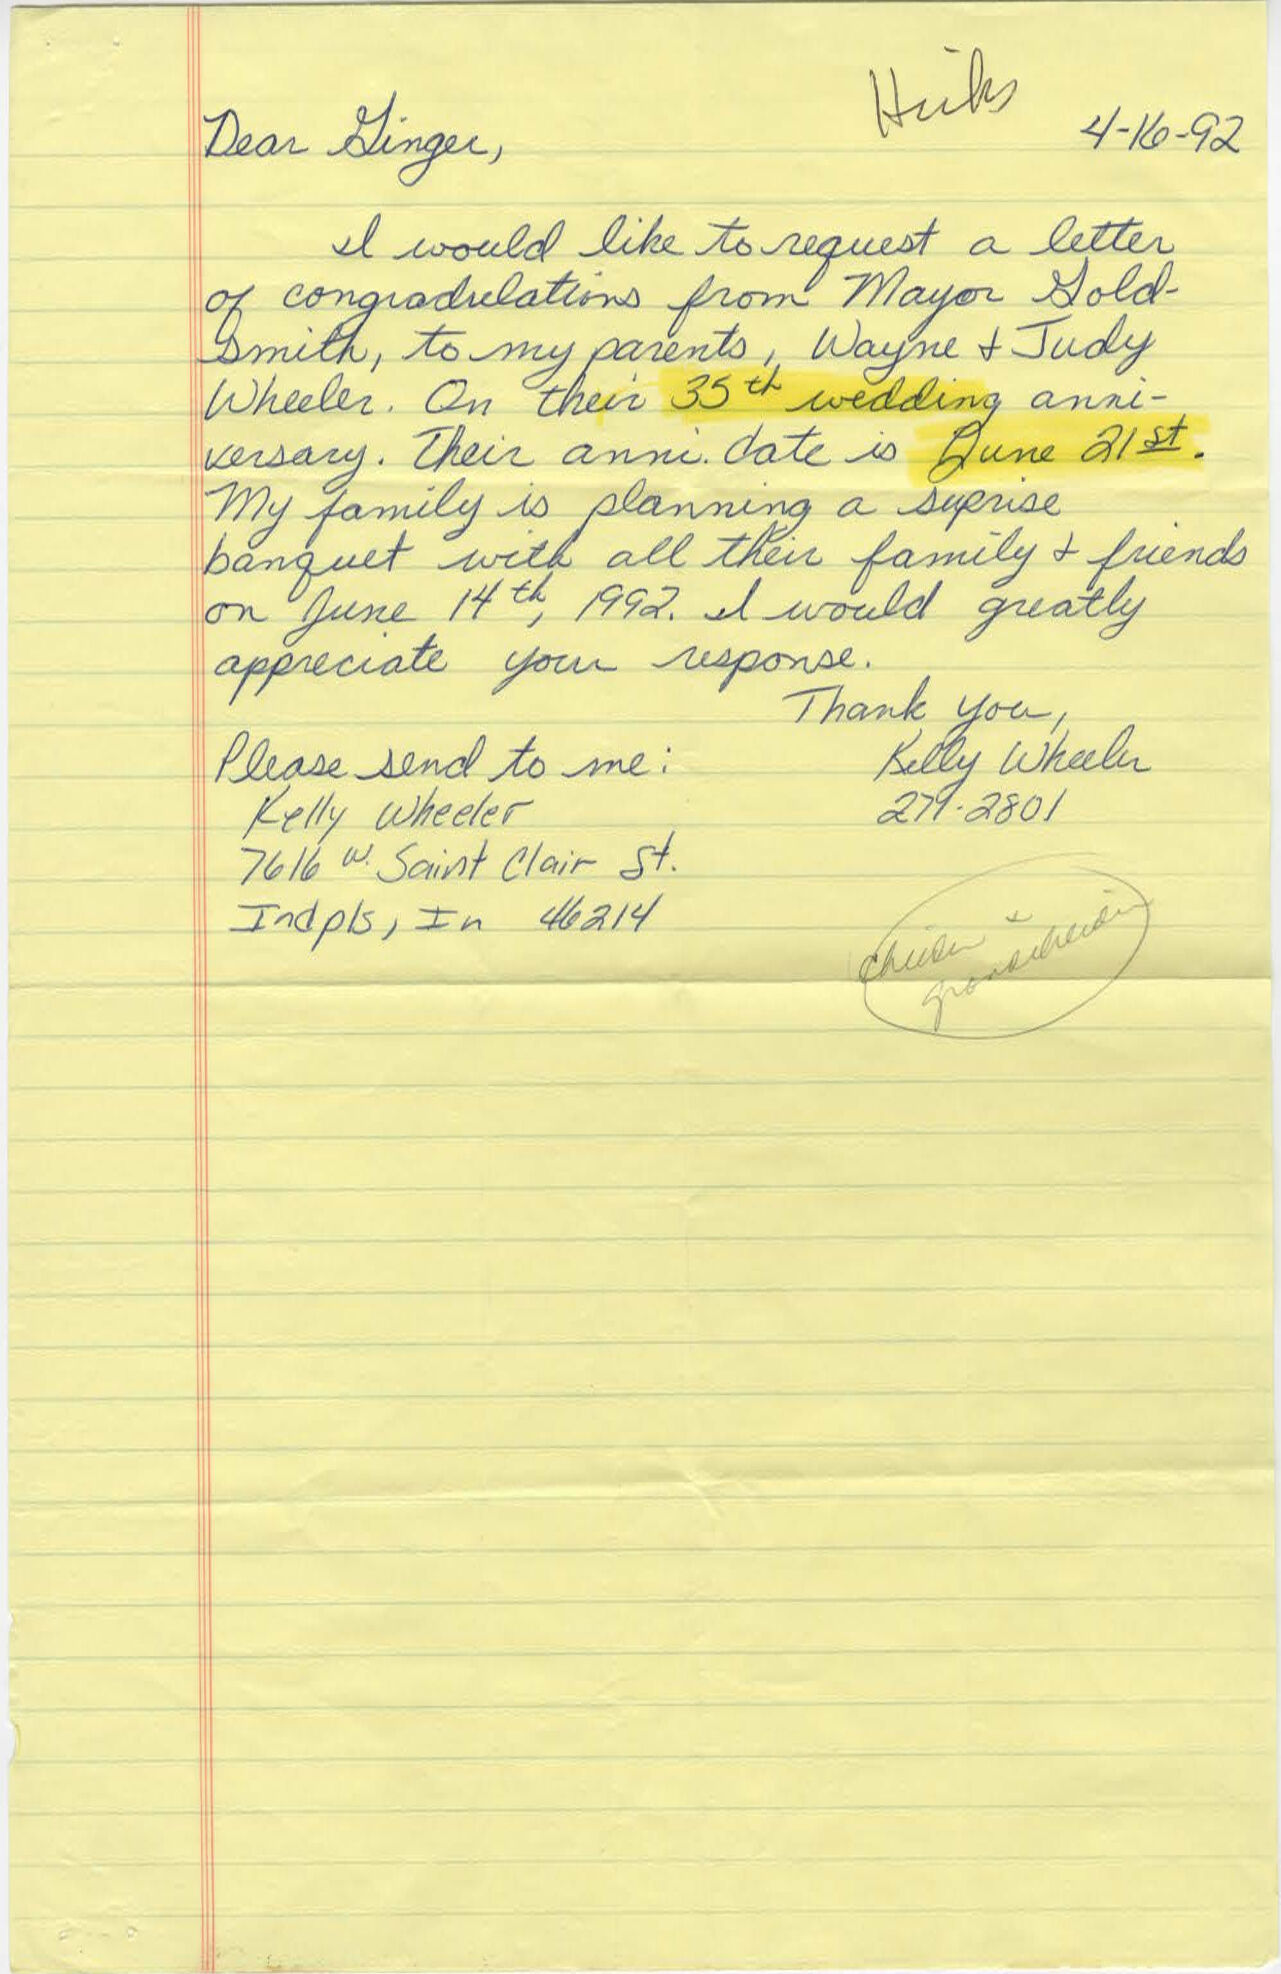 4-16-92
Dear Ginger,
I would like to request a letter
of congradulations from Mayor Gold-
Smith, to my parents, Wayne & Judy
Wheeler. On their 35th wedding anni-
versary. Their anni. date is June 21st.
My family is planning a suprise
banquet with all their family & friends
on June 14th, 1992. I would greatly
appreciate your response.
Thank you,
Kelly Wheeler
279-2801
Please send to me:
Kelly Wheeler
7616 W. Saint Clair St.
Indpls, In 46214